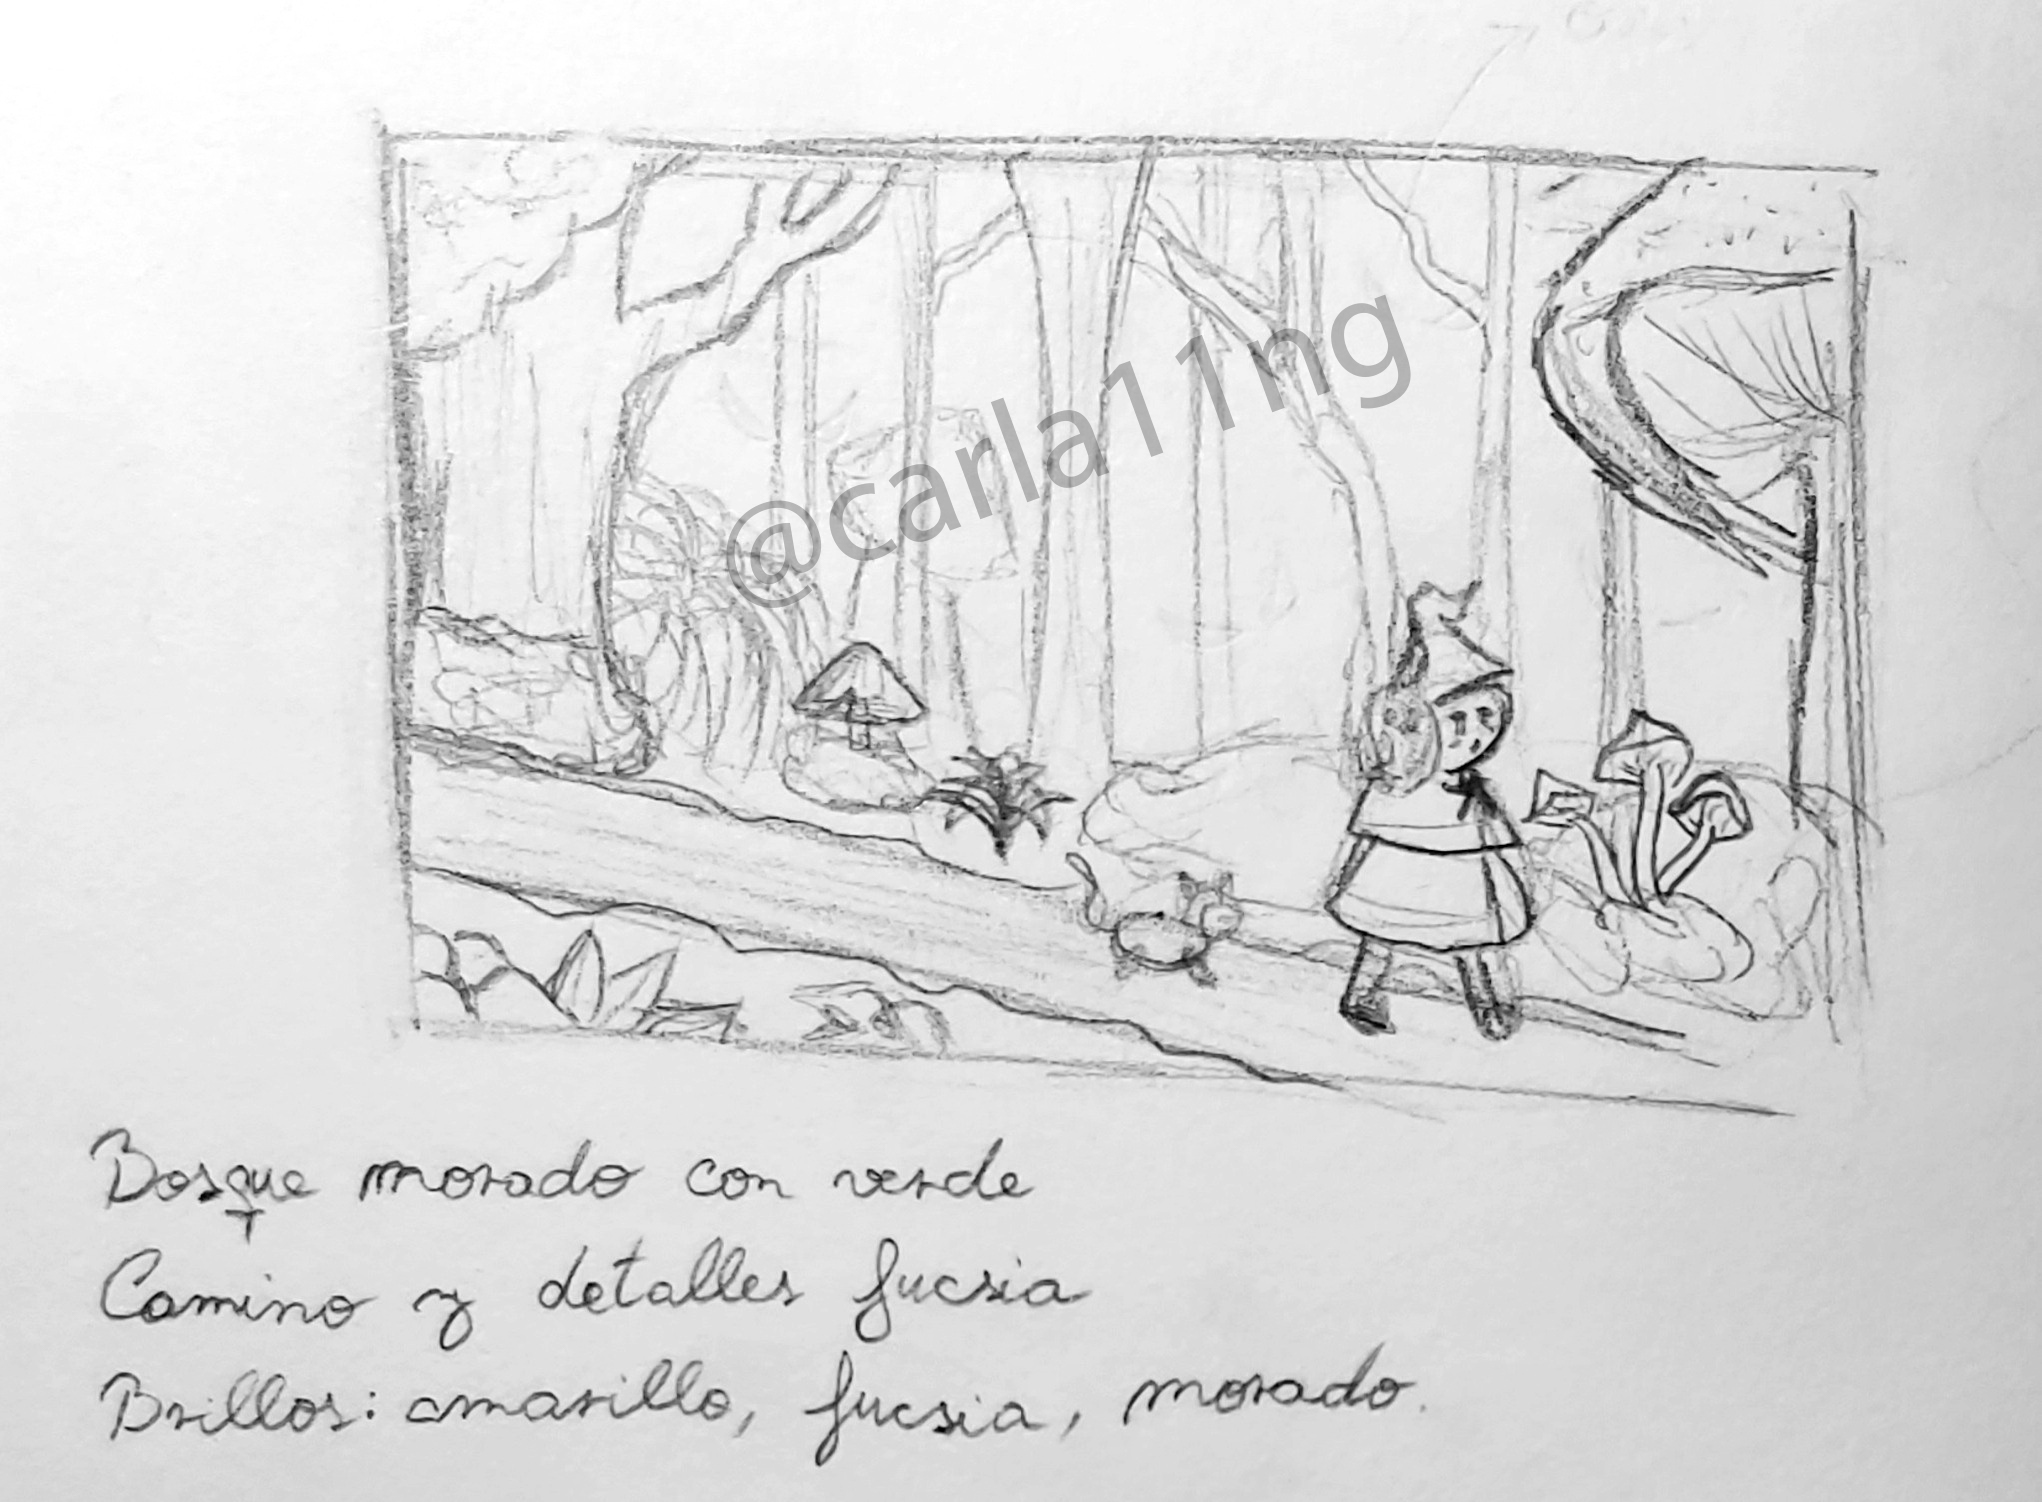 @carla11ng
Bosque morado con verde
Camino y detalles fucsia
Brillos: amarillo, fucsia, morado.